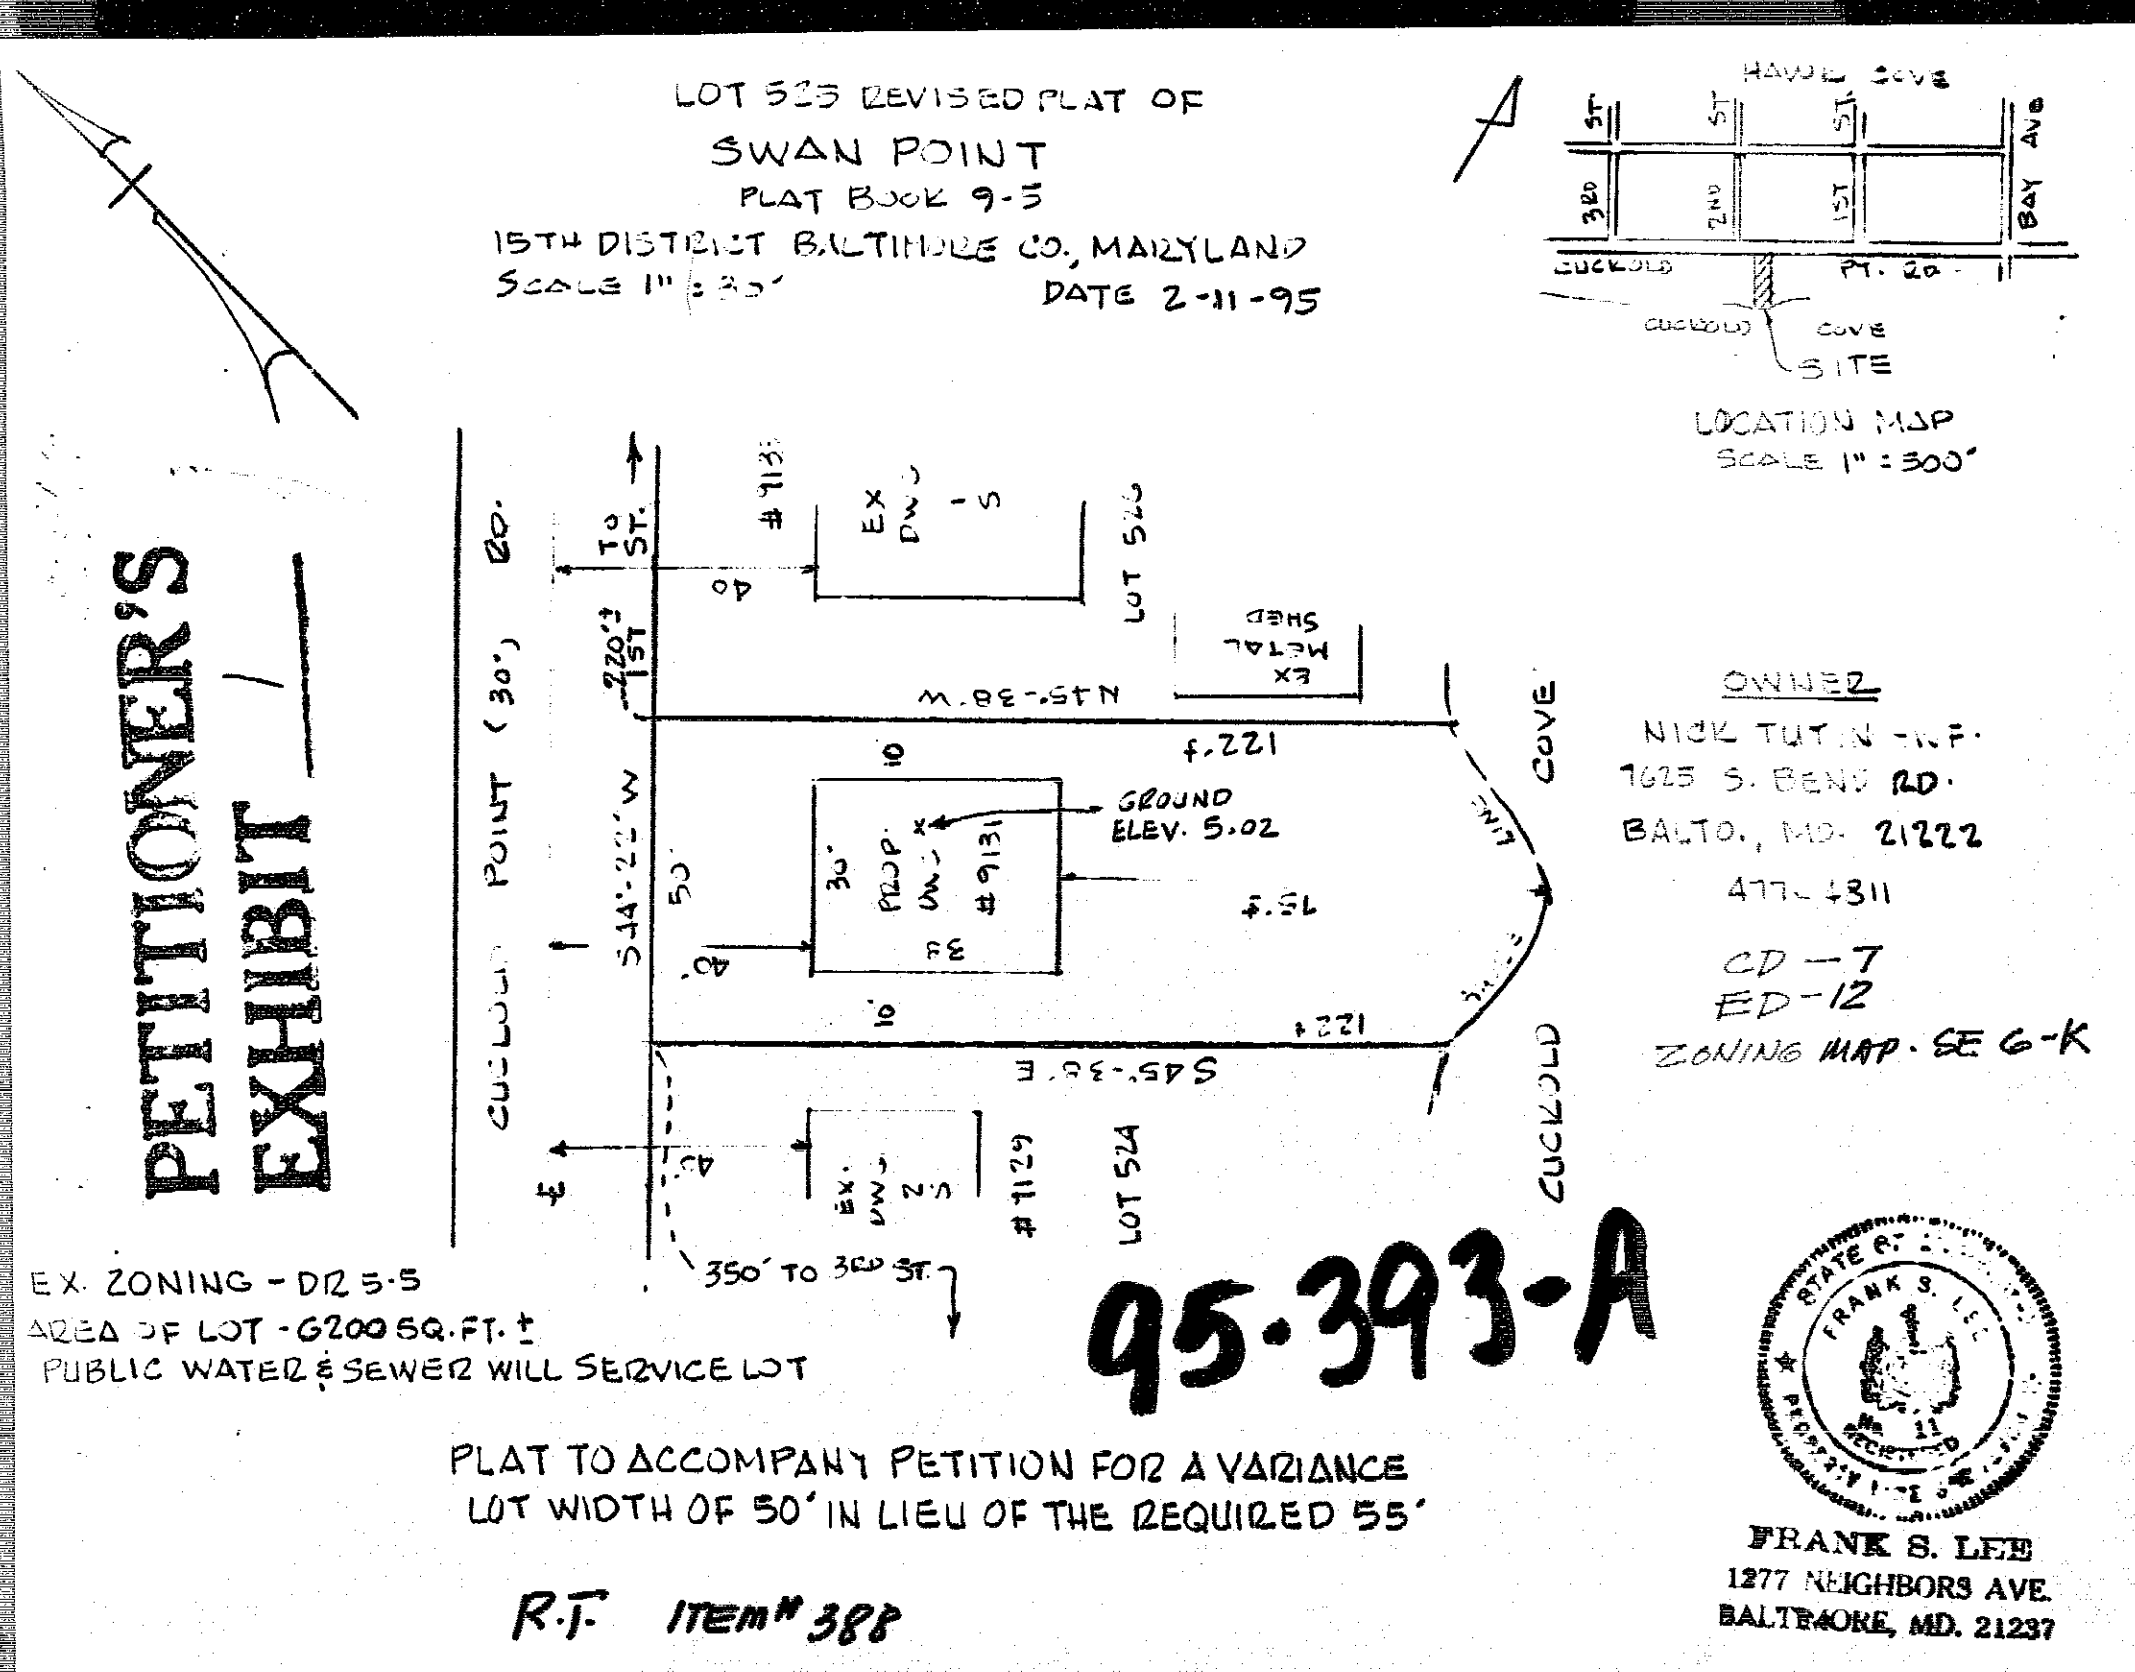 LOT 525 REVISED PLAT OF
SWAN POINT
PLAT BOOK 9-5
15TH DISTRICT BALTIMORE CO., MARYLAND
SCALE 1" = 30'
DATE 2-11-95
HAWK COVE
3RD ST
2ND ST
1ST ST.
BAY AVE
CUCKOLD PT. RD.
CUCKOLD COVE
SITE
LOCATION MAP
SCALE 1" = 500'
PETITIONER'S
EXHIBIT 1
CUCKOLD POINT (30') RD.
220'± TO
1ST ST.
# 9133
EX
DWG
LOT 526
40
EX
METAL
SHED
N 45°-38' W
122'±
S44°-22' W
50'
10
30'
PROP.
DWG X
# 9131
GROUND
ELEV. 5.02
75'±
40'
10'
122±
S45°-38' E
LINE
CUCKOLD COVE
40'
EX.
DWG
2-S
# 9129
LOT 524
350' TO 3RD ST.
OWNER
NICK
S. BEND RD.
BALTO., MD. 21222
CD - 7
ED - 12
ZONING MAP. SE 6-K
EX. ZONING - DR 5.5
AREA OF LOT - 6200 SQ. FT. ±
PUBLIC WATER & SEWER WILL SERVICE LOT
95-393-A
PLAT TO ACCOMPANY PETITION FOR A VARIANCE
LOT WIDTH OF 50' IN LIEU OF THE REQUIRED 55'
R.T. ITEM # 388
STATE OF
FRANK S. LEE
FRANK S. LEE
1277 NEIGHBORS AVE.
BALTIMORE, MD. 21237